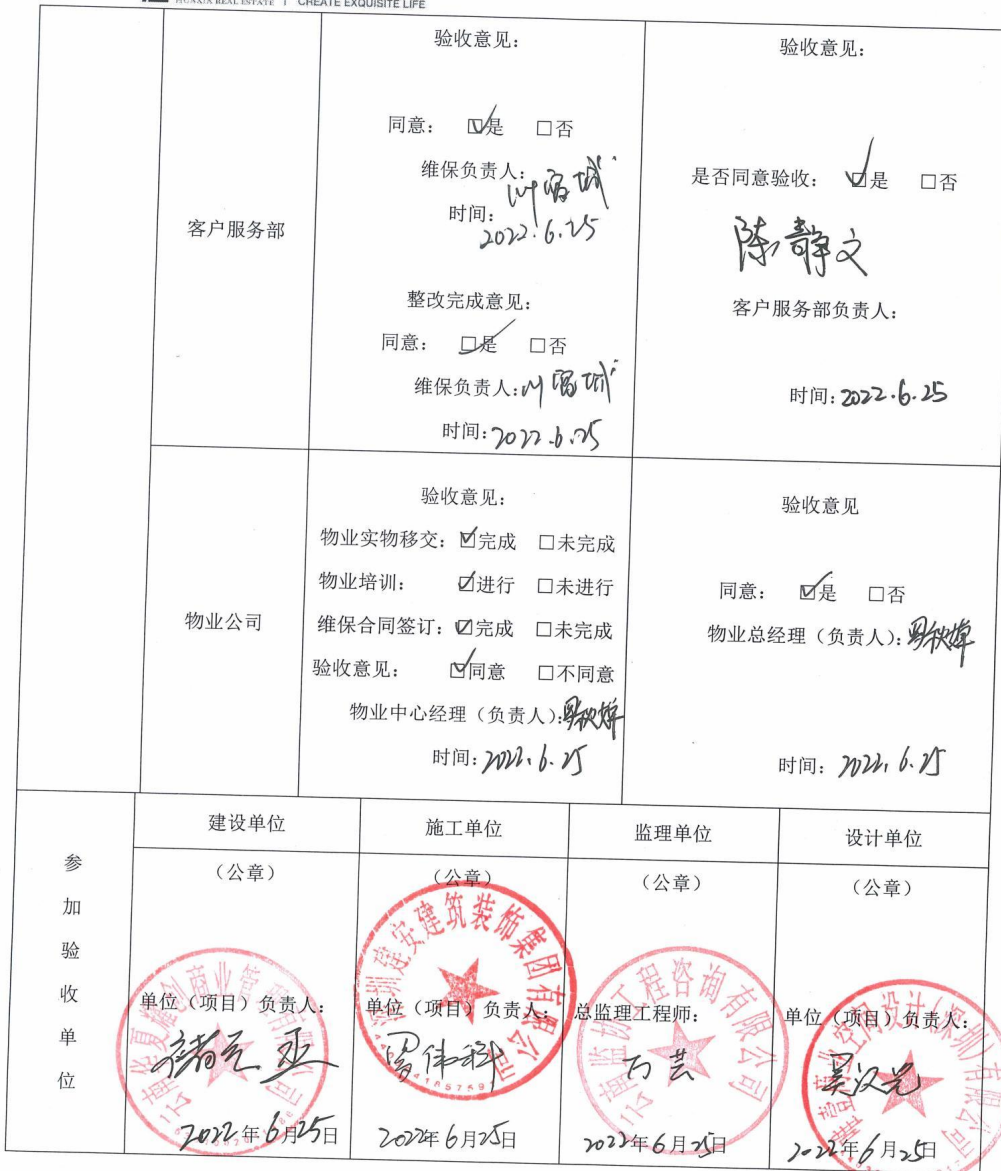 HUAXIA REAL ESTATE | CREATE EXQUISITE LIFE
客户服务部
验收意见：
同意： ☑是 □否
维保负责人：
时间：
2022.6.25
整改完成意见：
同意： ☑是 □否
维保负责人：
时间：2022.6.25
验收意见：
是否同意验收： ☑是 □否
陈静文
客户服务部负责人：
时间：2022.6.25
物业公司
验收意见：
物业实物移交：☑完成 □未完成
物业培训： ☑进行 □未进行
维保合同签订：☑完成 □未完成
验收意见： ☑同意 □不同意
物业中心经理（负责人）：
时间：2022.6.25
验收意见
同意： ☑是 □否
物业总经理（负责人）：
时间：2022.6.25
参加验收单位
建设单位
（公章）
单位（项目）负责人：
2022年6月25日
施工单位
（公章）
深圳建安建筑装饰集团有限公司
单位（项目）负责人：
2022年6月25日
监理单位
（公章）
工程咨询有限公司
总监理工程师：
万芸
2022年6月25日
设计单位
（公章）
空间设计(深圳)有限公司
单位（项目）负责人：
吴汉光
2022年6月25日